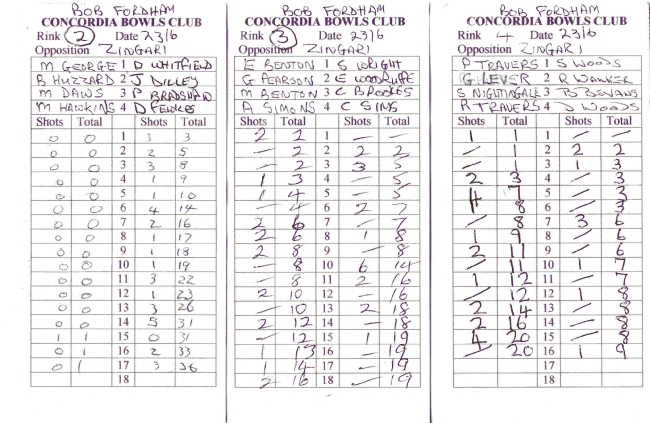 BOB FORDHAM
CONCORDIA BOWLS CLUB
Rink 2 Date 23/6
Opposition ZINGARI
M GEORGE 1 D WHITFIELD
B HUZZARD 2 J DILLEY
M DAWS 3 P BRADSHAW
M HAWKINS 4 D
Shots Total Shots Total
0 0 1 3 3
0 0 2 2 5
0 0 3 3 8
0 0 4 1 9
0 0 5 1 10
0 0 6 4 14
0 0 7 2 16
0 0 8 1 17
0 0 9 1 18
0 0 10 1 19
0 0 11 3 22
0 0 12 1 23
0 0 13 3 26
0 0 14 5 31
1 1 15 0 31
0 1 16 2 33
0 1 17 3 36
18
BOB FORDHAM
CONCORDIA BOWLS CLUB
Rink 3 Date 23/6
Opposition ZINGARI
E BENTON 1 S WRIGHT
G PEARSON 2 E WOODRUFFE
M BENTON 3 C BROOKES
A SIMONS 4 C SIMS
Shots Total Shots Total
2 2 1 - -
- 2 2 2 2
- 2 3 3 5
1 3 4 - 5
1 4 5 - 5
- 4 6 2 7
2 6 7 - 7
2 6 8 1 8
2 8 9 - 8
- 8 10 6 14
- 8 11 2 16
2 10 12 - 16
- 10 13 2 18
2 12 14 - 18
- 12 15 1 19
1 13 16 - 19
1 14 17 - 19
2 16 18 - 19
BOB FORDHAM
CONCORDIA BOWLS CLUB
Rink 4 Date 23/6
Opposition ZINGARI
P TRAVERS 1 S WOODS
G LEVER 2 R
S NIGHTINGALE 3 B BEVANS
R TRAVERS 4 D WOODS
Shots Total Shots Total
1 1 1 / /
/ 1 2 2 2
/ 1 3 1 3
2 3 4 / 3
4 7 5 / 3
1 8 6 / 3
/ 8 7 3 6
1 9 8 / 6
2 11 9 / 6
/ 11 10 1 7
1 12 11 / 7
/ 12 12 1 8
2 14 13 / 8
2 16 14 / 8
4 20 15 / 8
/ 20 16 1 9
17
18